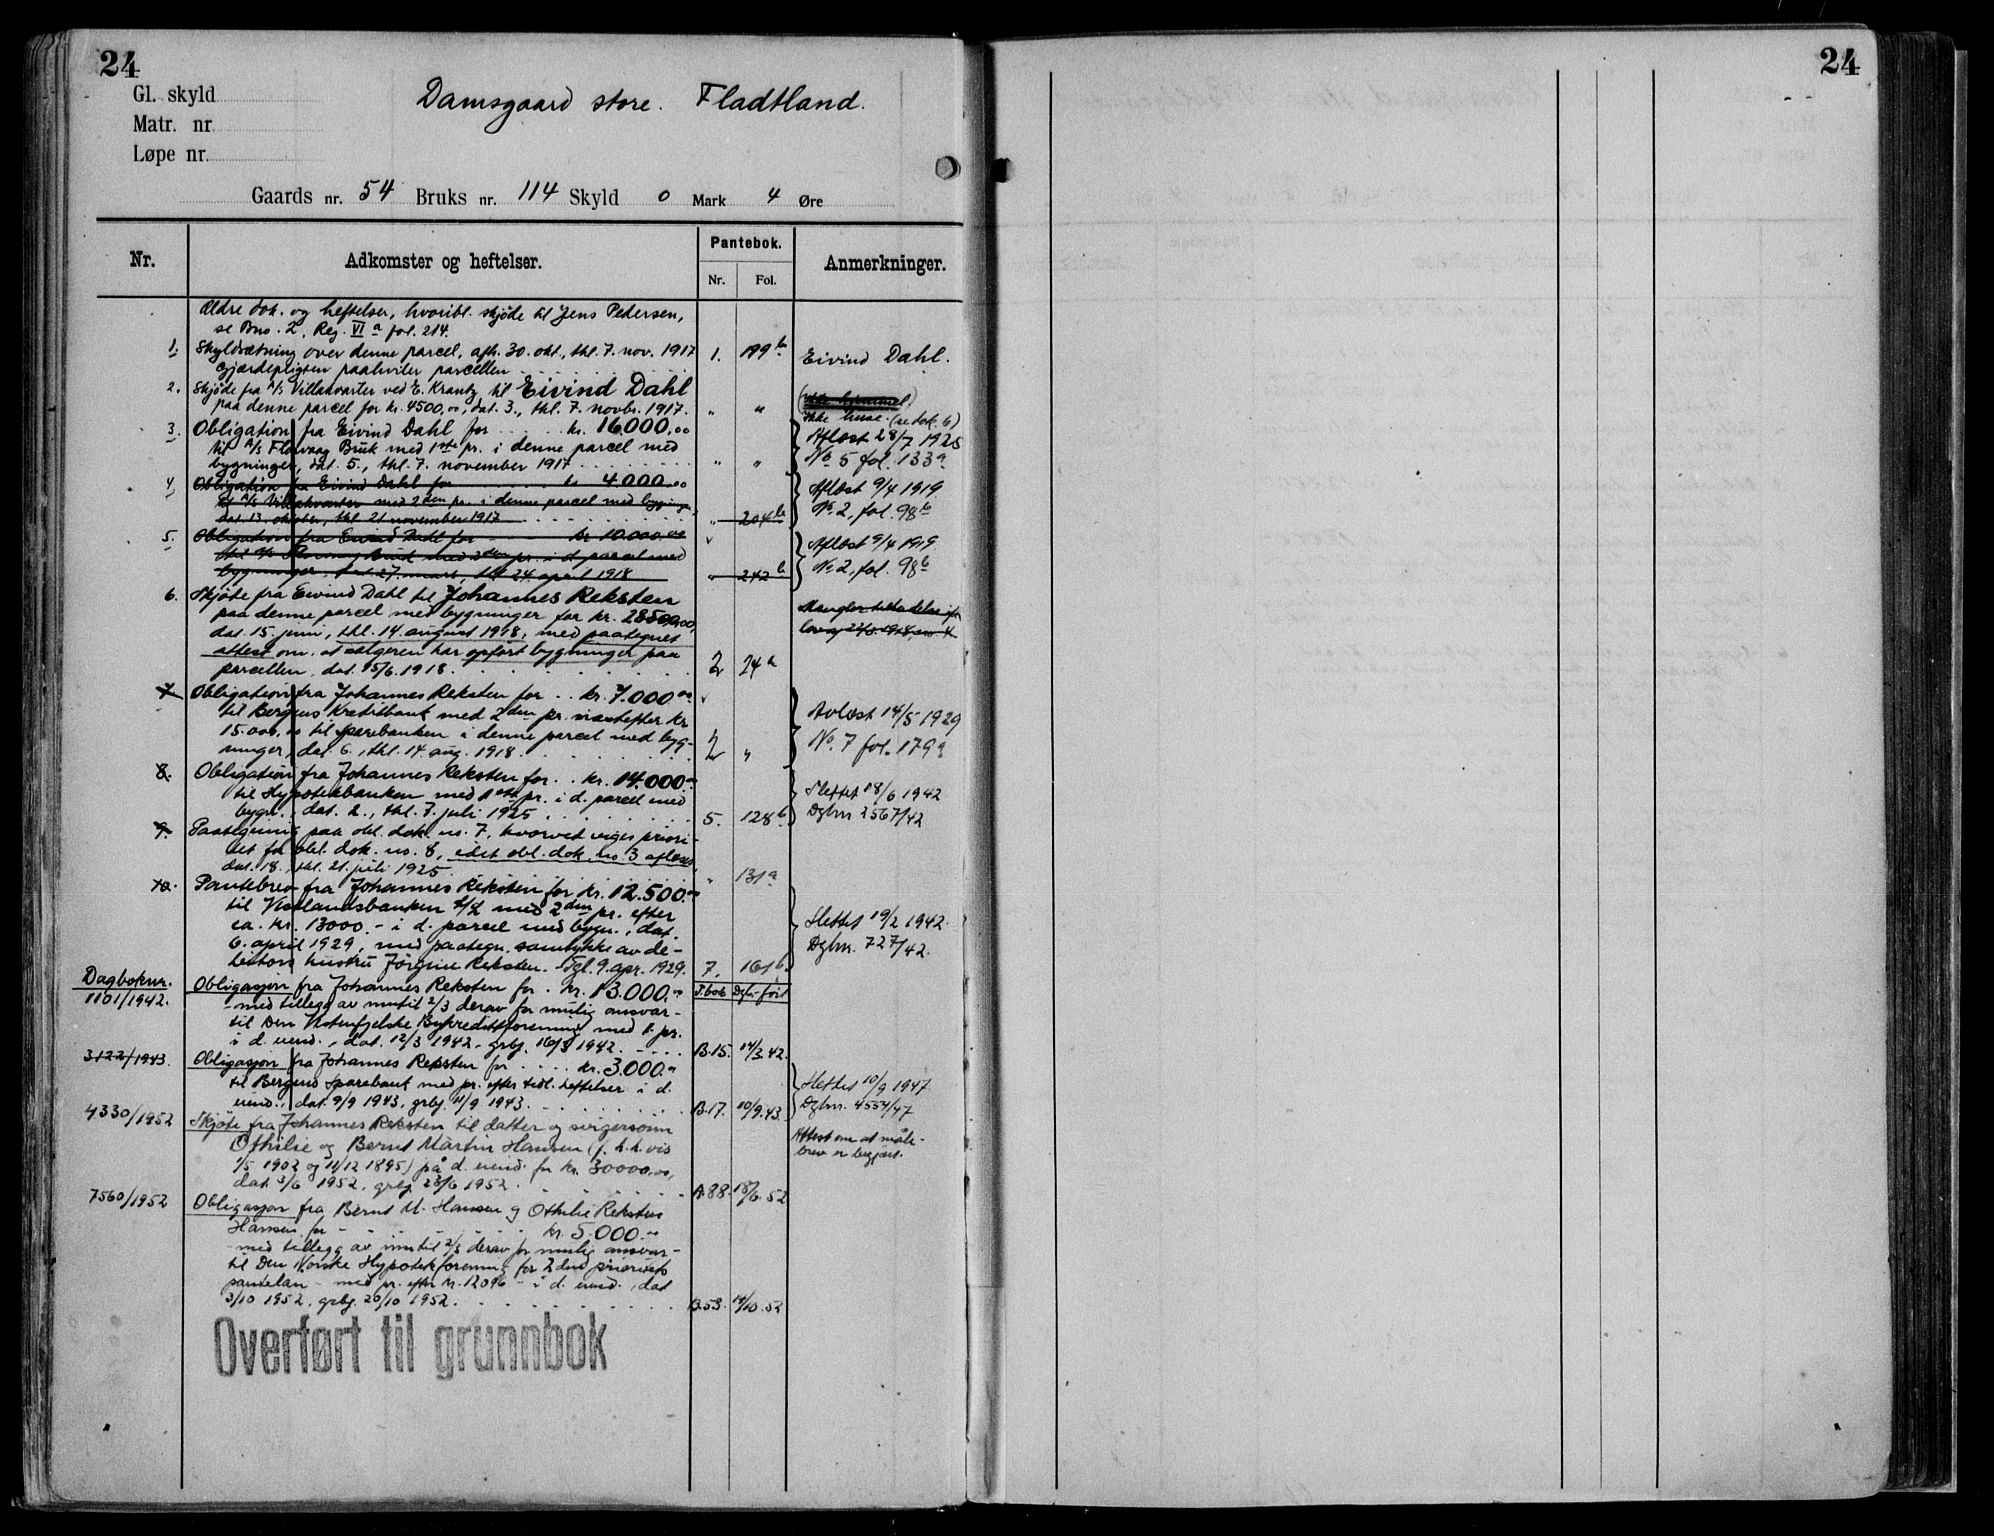 24
24
Gl. skyld
Matr. nr.
Løpe nr.
Damsgaard store. Fladtland.
Gaards nr. 54 Bruks nr. 114 Skyld 0 Mark 4 Øre
Nr. Adkomster og heftelser. Pantebok. Anmerkninger.
Nr. Fol.
Ældre dok. og heftelser, hvoribl. skjøde til Jens Pedersen,
se Bno. 2, Reg. VI a fol. 214.
1. Skyldsætning over denne parcel, afh. 30. okt., thl. 7. nov. 1917 1. 199 b Eivind Dahl.
Gjærdepligten paahviler parcellen
2. Skjøde fra A/S Villakvarter ved E. Krantz til Eivind Dahl
paa denne parcel for kr. 4500,00, dat. 3., thl. 7. novbr. 1917. " "
ikke huse. (se dok. 6)
3. Obligation fra Eivind Dahl for kr. 16000,00 Aflæst 28/7 1925
til A/S Flovaag Bruk med 1ste pr. i denne parcel med No 5 fol. 133a
bygninger, dat. 5., thl. 7. november 1917 " "
4. Obligation fra Eivind Dahl for kr. 4000,00 Aflæst 9/4 1919
til A/S Villakvarter med 2den pr. i denne parcel med bygninger, No. 2, fol. 98b
dat. 13. oktober, thl. 21 november 1917 " 204b
5. Obligation fra Eivind Dahl for kr. 10.000,00 Aflæst 9/4 1919
til A/S Bruk med 3den pr. i d. parcel med No. 2, fol. 98b
bygninger, dat. 27. mars, thl. 24. april 1918 " 242b
6. Skjøte fra Eivind Dahl til Johannes Reksten
paa denne parcel med bygninger for kr. 28500,00, Mangler tilladelse
dat. 15. juni, thl. 14. august 1918, med paategnet
attest om, at sælgeren har opført bygninger paa
parcellen, dat. 15/6. 1918. 2 24a
7. Obligation fra Johannes Reksten for kr. 7.000,00
til Bergens Kreditbank med 2den pr. næstefter kr Avlæst 14/5 1929
15.000,00 til Sparebanken i denne parcel med byg- No. 7 fol. 179a
ninger, dat. 6., thl. 14. aug. 1918. 2 "
8. Obligation fra Johannes Reksten for kr. 14.000.-
til Hypotekbanken med 1ste pr. i d. parcel med Slettet 18/6 1942
bygn., dat. 2., thl. 7. juli 1925 5. 128b Dgbnr 2567/42
9. Paategning paa obl. dok. no. 7, hvorved viges priori-
tet for obl. dok. no. 8, idet obl. dok. no. 3 aflæses
dat. 18., thl. 21. juli 1925. " 131a
10. Pantebrev fra Johannes Reksten for kr. 12.500.-
til Vestlandsbanken A/L med 2den pr. efter
ca. kr. 13000.- i d. parcel med bygn., dat. Slettet 19/2 1942.
6. april 1929, med paategn. samtykke av de- Dgbnr. 727/42.
bitors hustru Jørgine Reksten. Tgl. 9. apr. 1929. 7. 161b
Dagboknr. Obligasjon fra Johannes Reksten for kr. 13.000.- P.bok Dgb.ført
1101/1942. - med tillegg av inntil 2/3 derav for mulig ansvar -
til Den Vestenfjelske Bykredittforening med 1. pr.
i d. eiend., dat. 12/3 1942, grbf. 16/3 1942. B.15. 14/3.42.
3122/1943. Obligasjon fra Johannes Reksten for kr. 3.000.-
til Bergens Sparebank med pr. efter tidl. heftelser i d. Slettet 10/9 1947.
eiend., dat. 9/9 1943, grbf. 11/9 1943. B.17. 10/9.43. Dgbnr. 4554/47
4330/1952 Skjøte fra Johannes Reksten til datter og svigersønn Attest om at måle-
Othilie og Bernt Martin Hansen (f. h.h.vis brev er begjært.
1/5 1902 og 11/12 1895) på d. eiend. for kr. 30000.00,
dat. 3/6 1952, grbf. 23/6 1952. A.88. 18/6.52
7560/1952 Obligasjon fra Bernt M. Hansen og Othilie Reksten
Hansen for kr. 5.000.-
- med tillegg av inntil 2/3 derav for mulig ansvar -
til Den Norske Hypotekforening for 2den prioritets
pantelån - med pr. efter kr. 12096 - i d. eiend., dat
3/10 1952, grbf. 20/10 1952. B.53. 14/10.52
Overført til grunnbok